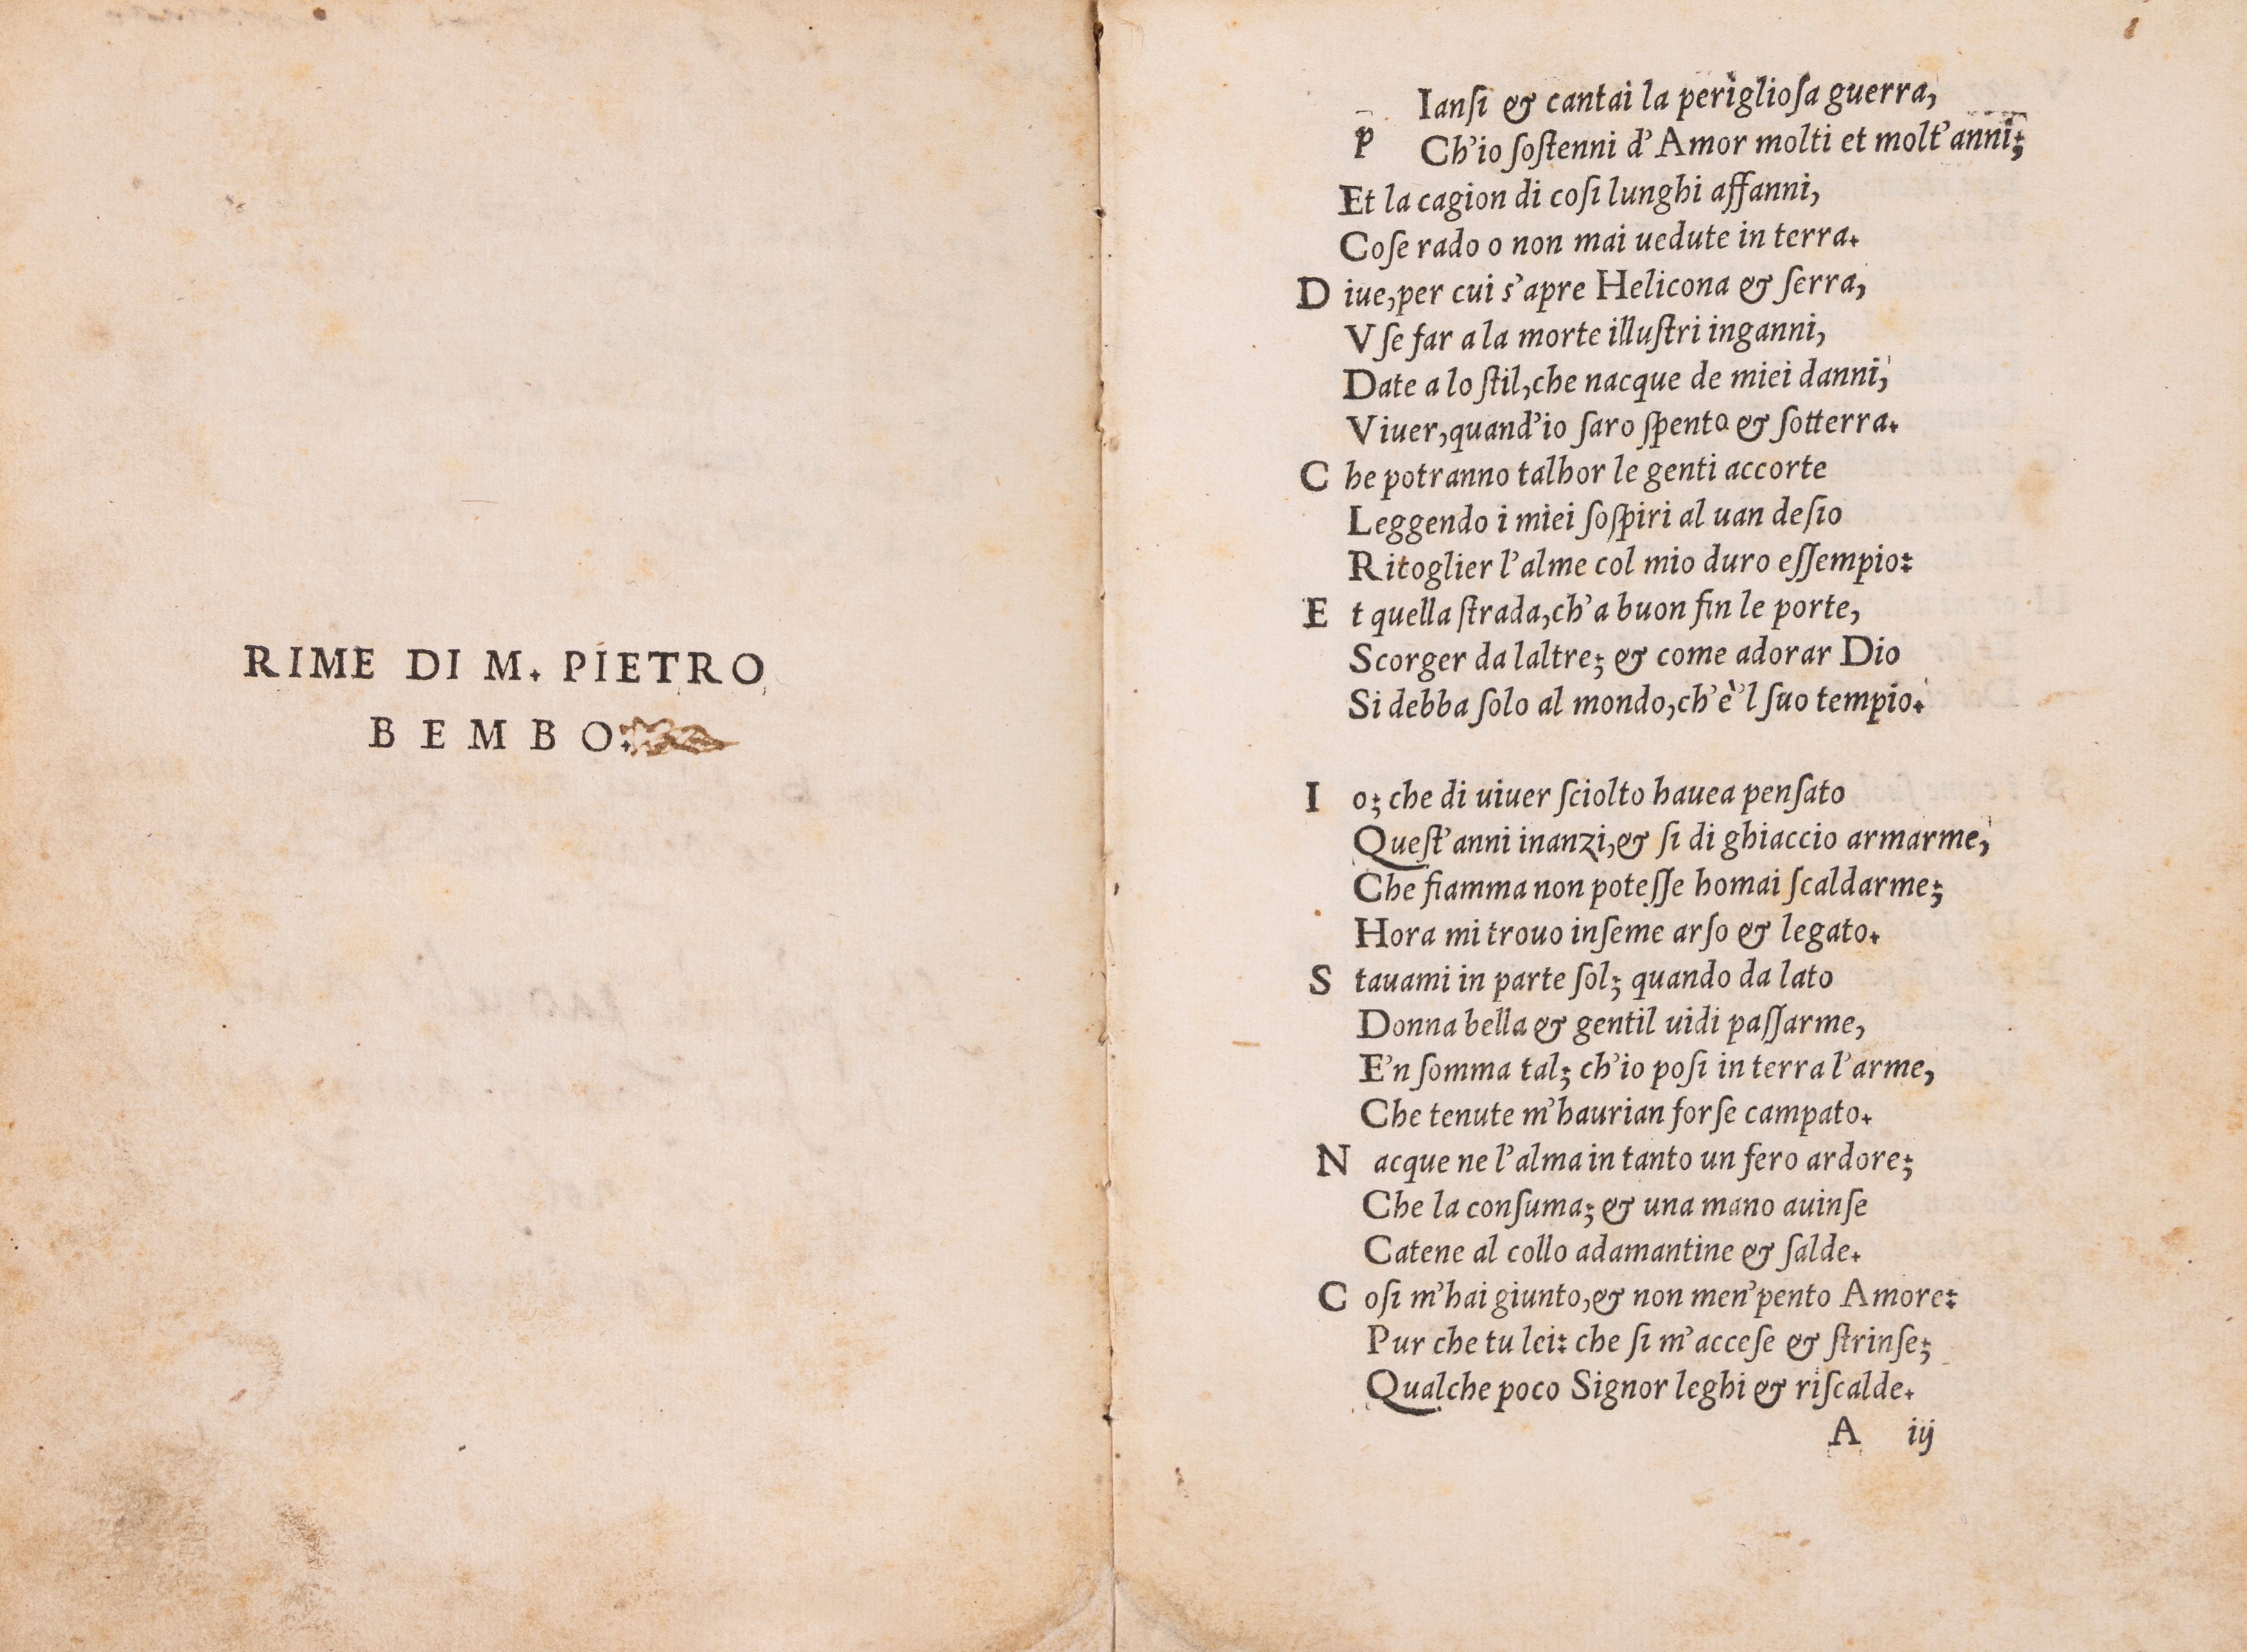 RIME DI M. PIETRO
BEMBO.
pIanſi & cantai la periglioſa guerra,
Ch'io ſoſtenni d'Amor molti et molt'anni;
Et la cagion di coſi lunghi affanni,
Coſe rado o non mai uedute in terra.
Diue, per cui s'apre Helicona & ſerra,
Vſe far a la morte illuſtri inganni,
Date a lo ſtil, che nacque de miei danni,
Viuer, quand'io ſaro ſpento & ſotterra.
Che potranno talhor le genti accorte
Leggendo i miei ſoſpiri al uan deſio
Ritoglier l'alme col mio duro eſſempio:
Et quella ſtrada, ch'a buon fin le porte,
Scorger da laltre; & come adorar Dio
Si debba ſolo al mondo, ch'è'l ſuo tempio.
Io; che di uiuer ſciolto hauea penſato
Queſt'anni inanzi, & ſi di ghiaccio armarme,
Che fiamma non poteſſe homai ſcaldarme;
Hora mi trouo inſeme arſo & legato.
Stauami in parte ſol; quando da lato
Donna bella & gentil uidi paſſarme,
E'n ſomma tal; ch'io poſi in terra l'arme,
Che tenute m'haurian forſe campato.
Nacque ne l'alma in tanto un fero ardore;
Che la conſuma; & una mano auinſe
Catene al collo adamantine & ſalde.
Coſi m'hai giunto, & non men'pento Amore:
Pur che tu lei: che ſi m'acceſe & ſtrinſe;
Qualche poco Signor leghi & riſcalde.
A iij